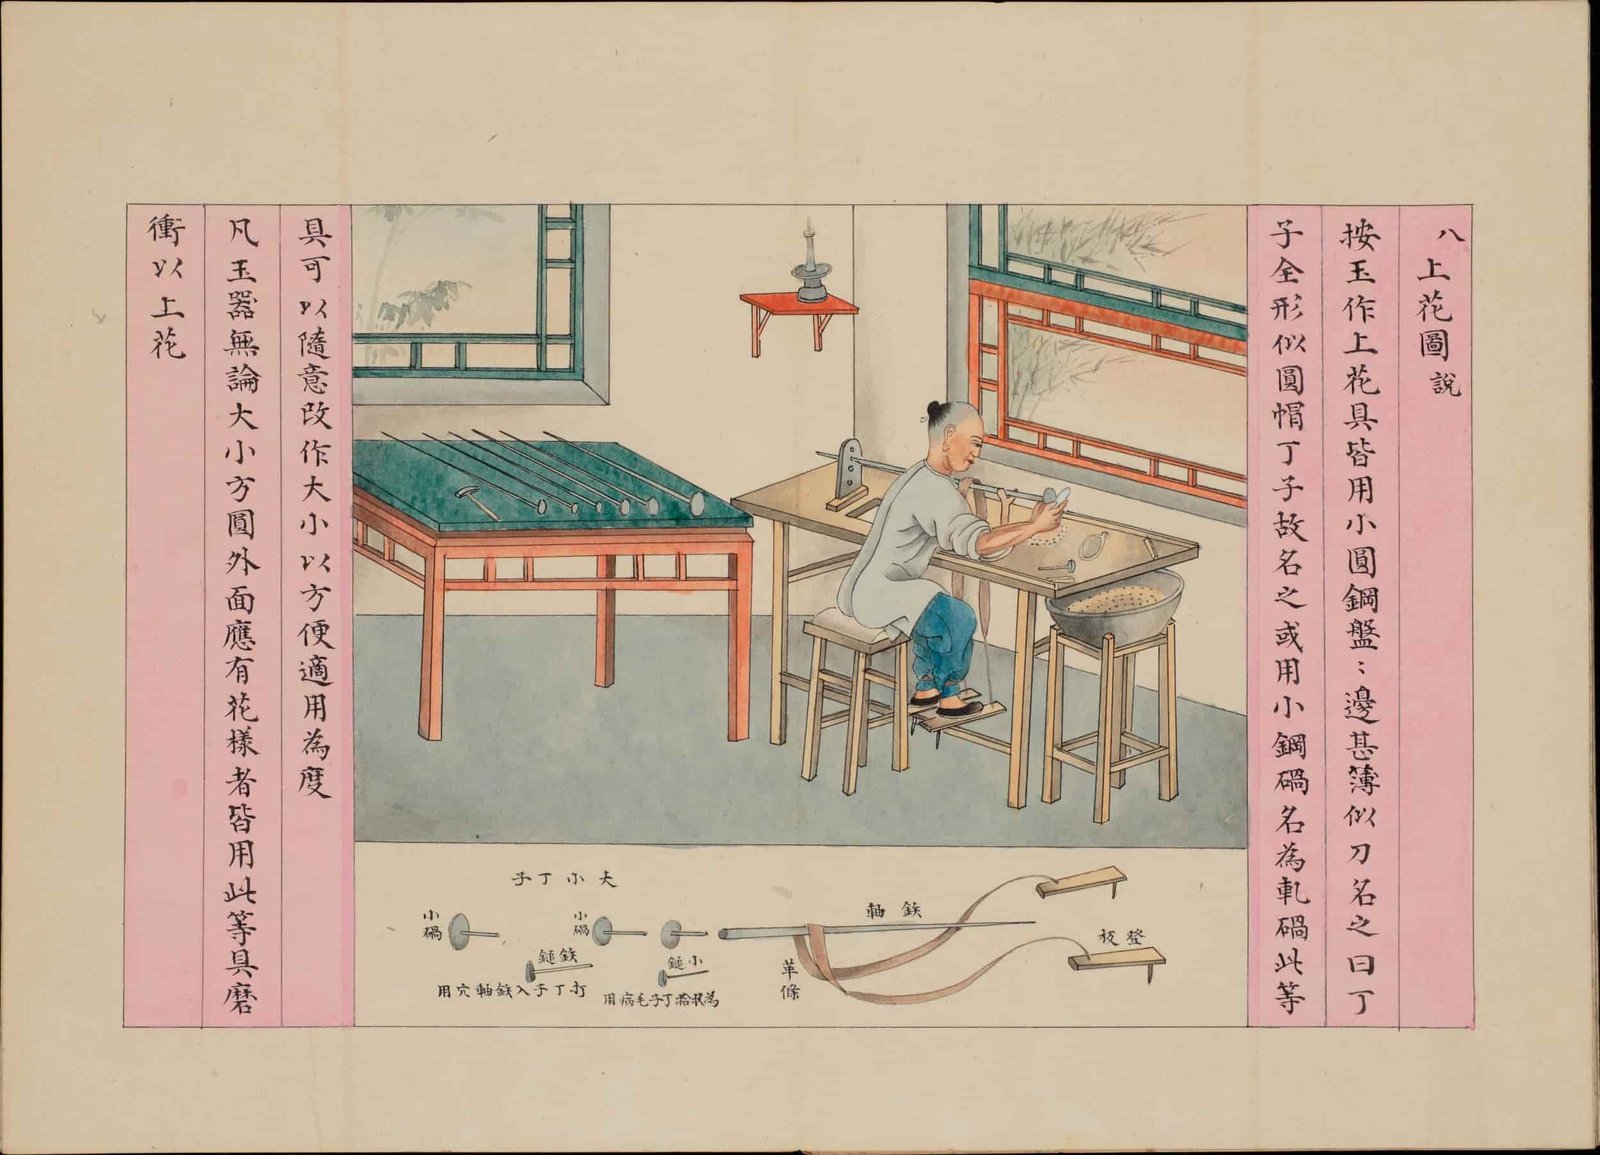 八上花圖說
按玉作上花具皆用小圓鋼盤〻邊甚薄似刀名之曰丁
子全形似圓帽丁子故名之或用小鋼碢名為軋碢此等
具可以隨意改作大小以方便適用為度
凡玉器無論大小方圓外面應有花樣者皆用此等具磨
衝以上花
大小丁子
登板
鉄軸
革條
小碢
小碢
小鎚
為收拾丁子毛病用
鉄鎚
打丁子入鉄軸穴用